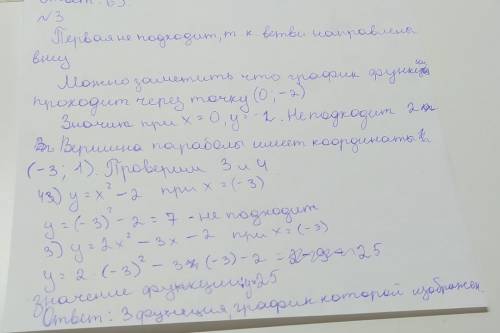 Ответ: б).
№3
Первая не подходит, т. к. ветви направлены
вниз
Можно заметить что график функции
проходит через точку (0; -2)
Значит при x = 0, y = -2. Не подходит 2
Вершина параболы имеет координаты
(-3; 1). Проверим 3 и 4
4) y = x² - 2 при x = (-3)
y = (-3)² - 2 = 7 - не подходит
3) y = 2x² - 3x - 2 при x = (-3)
y = 2 · (-3)² - 3 · (-3) - 2 = 25
значение функции 25
Ответ: 3 функция, график которой изображен.